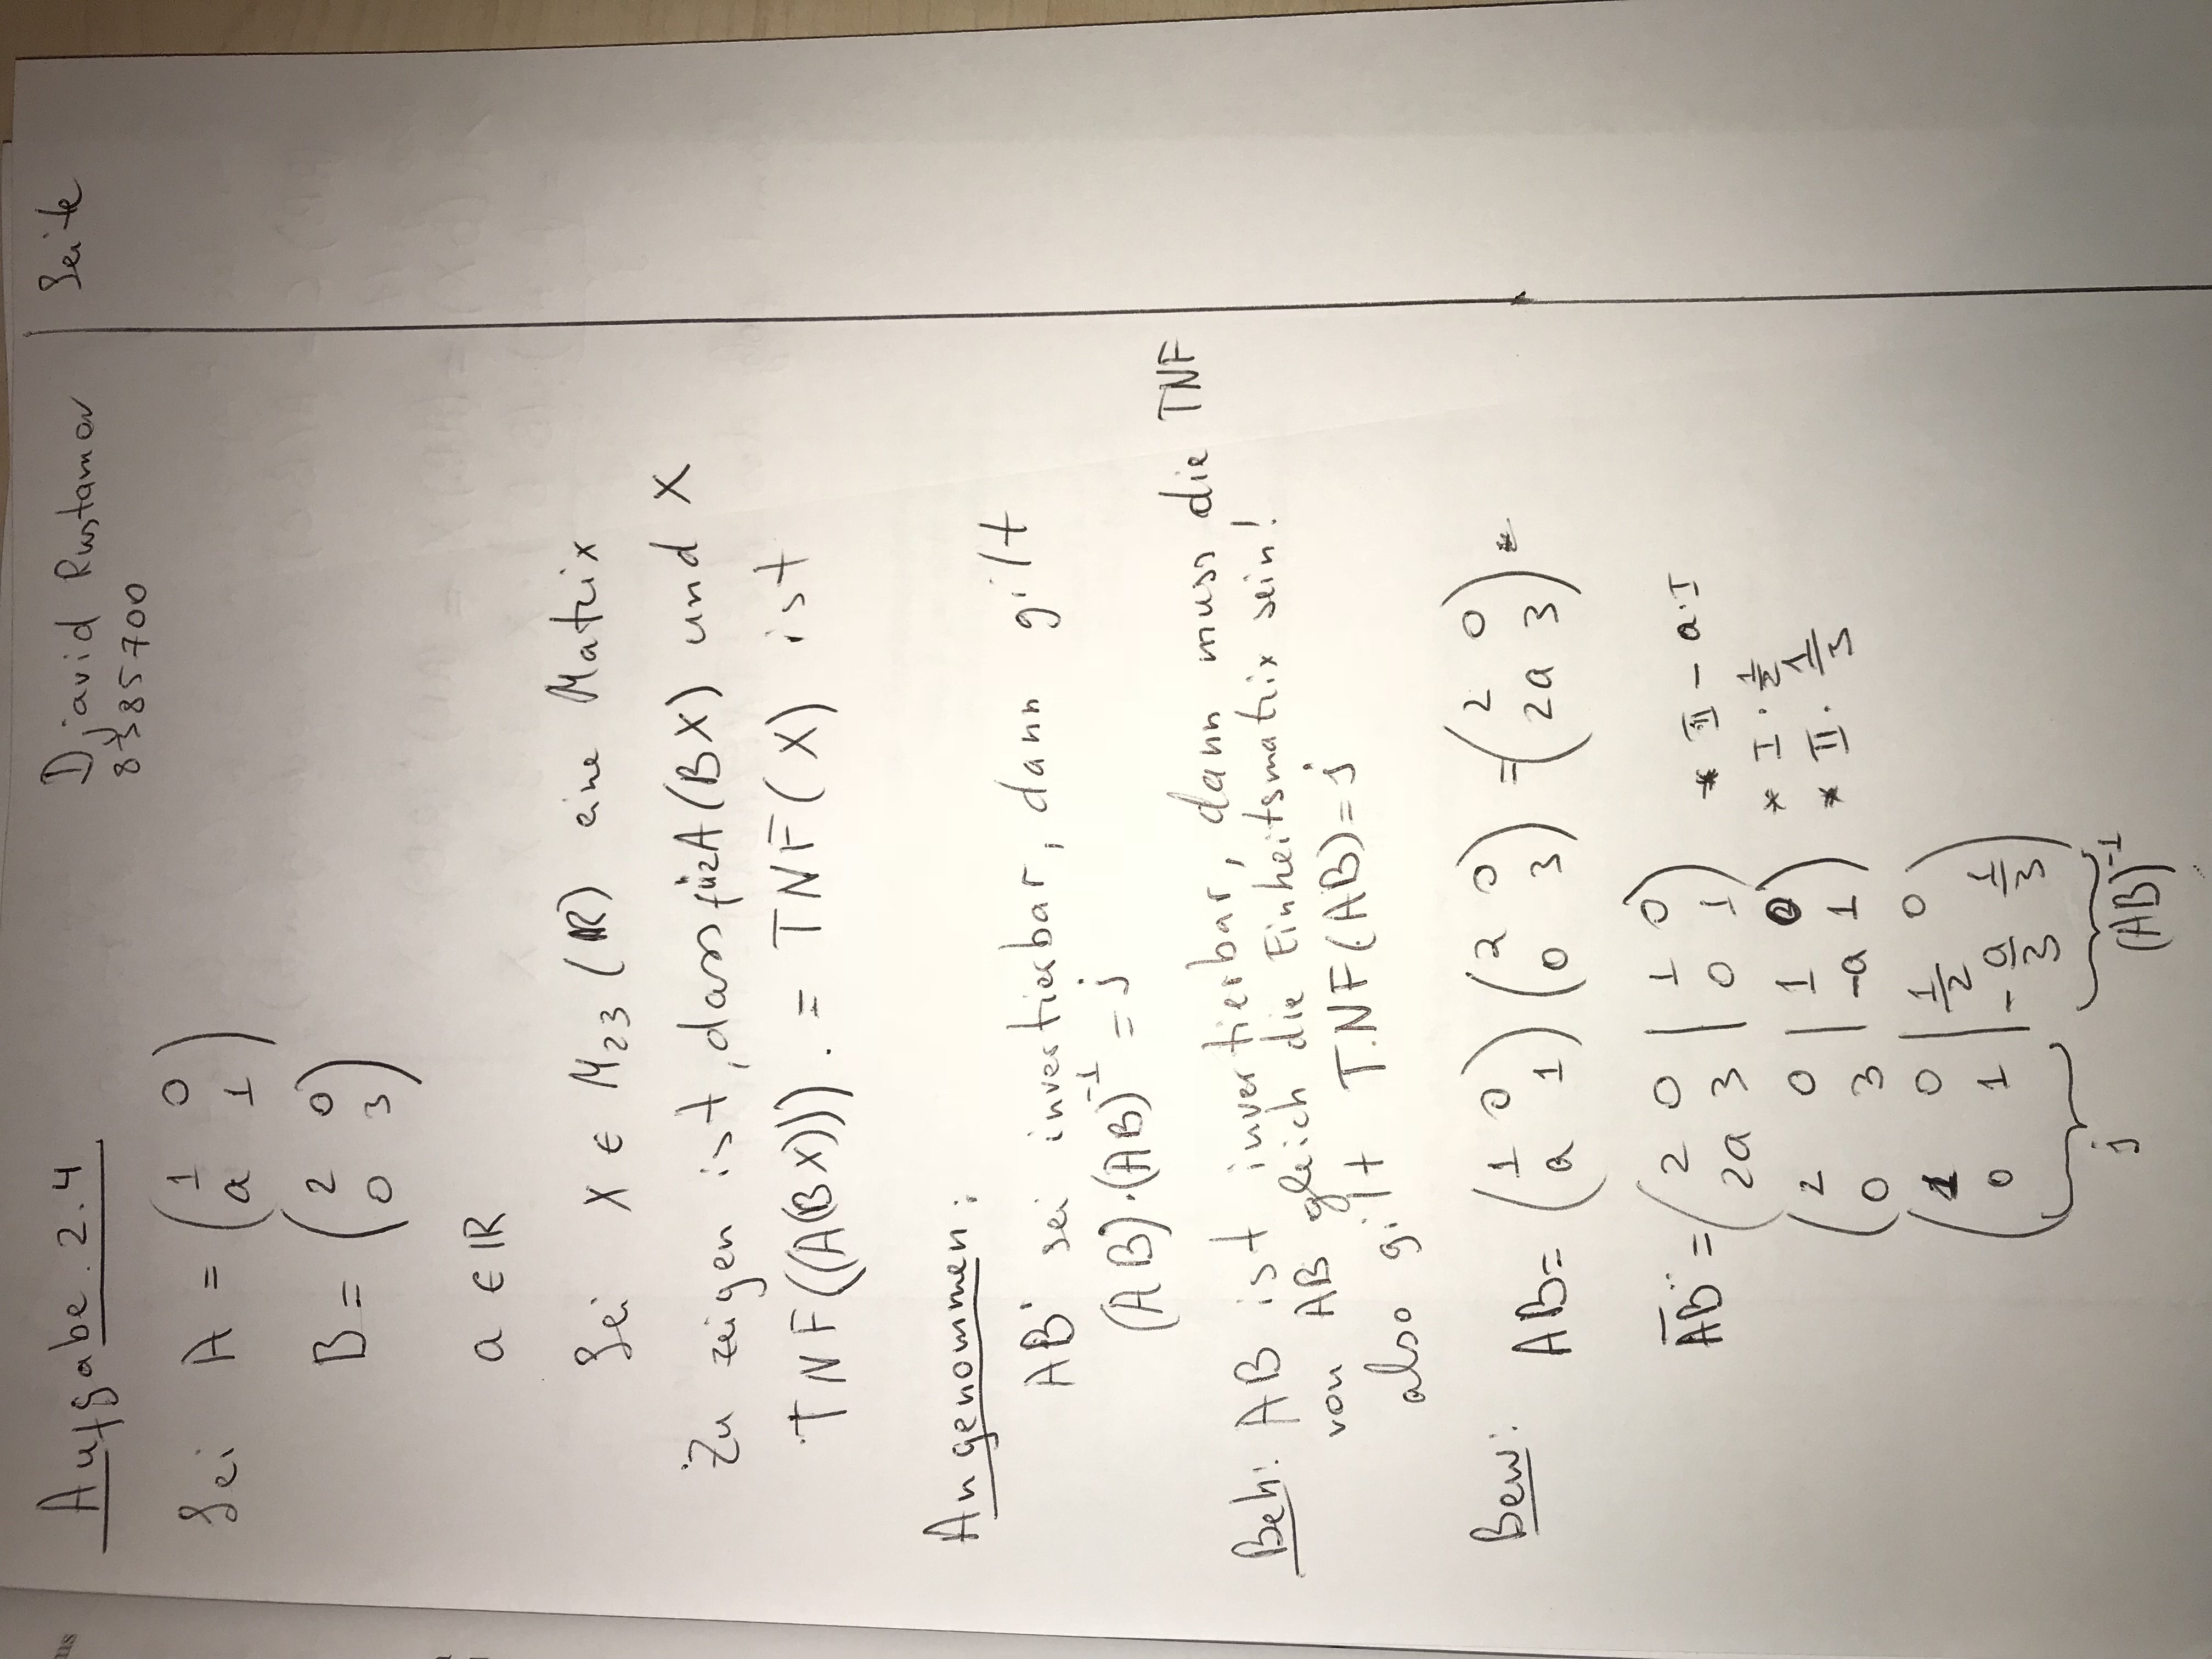 Aufgabe 2.4
Djavid Rustamov
8385700
Seite
Sei A = (1 0
a 1)
B = (2 0
0 3)
a ∈ ℝ
Sei X ∈ M₂₃(ℝ) eine Matrix
Zu zeigen ist, dass für A(BX) und X
TNF((A(BX))). = TNF(X) ist
Angenommen:
AB sei invertierbar, dann gilt
(AB)·(AB)⁻¹ = j
Beh: AB ist invertierbar, dann muss die TNF
von AB gleich die Einheitsmatrix sein!
also gilt TNF(AB) = j
Bew: AB = (1 0
a 1) (2 0
0 3) = (2 0
2a 3)
AB = (2 0 | 1 0
2a 3 | 0 1) * II - a·I
(2 0 | 1 0
0 3 | -a 1) * I · 1/2
* II · 1/3
(1 0 | 1/2 0
0 1 | -a/3 1/3)
j
(AB)⁻¹